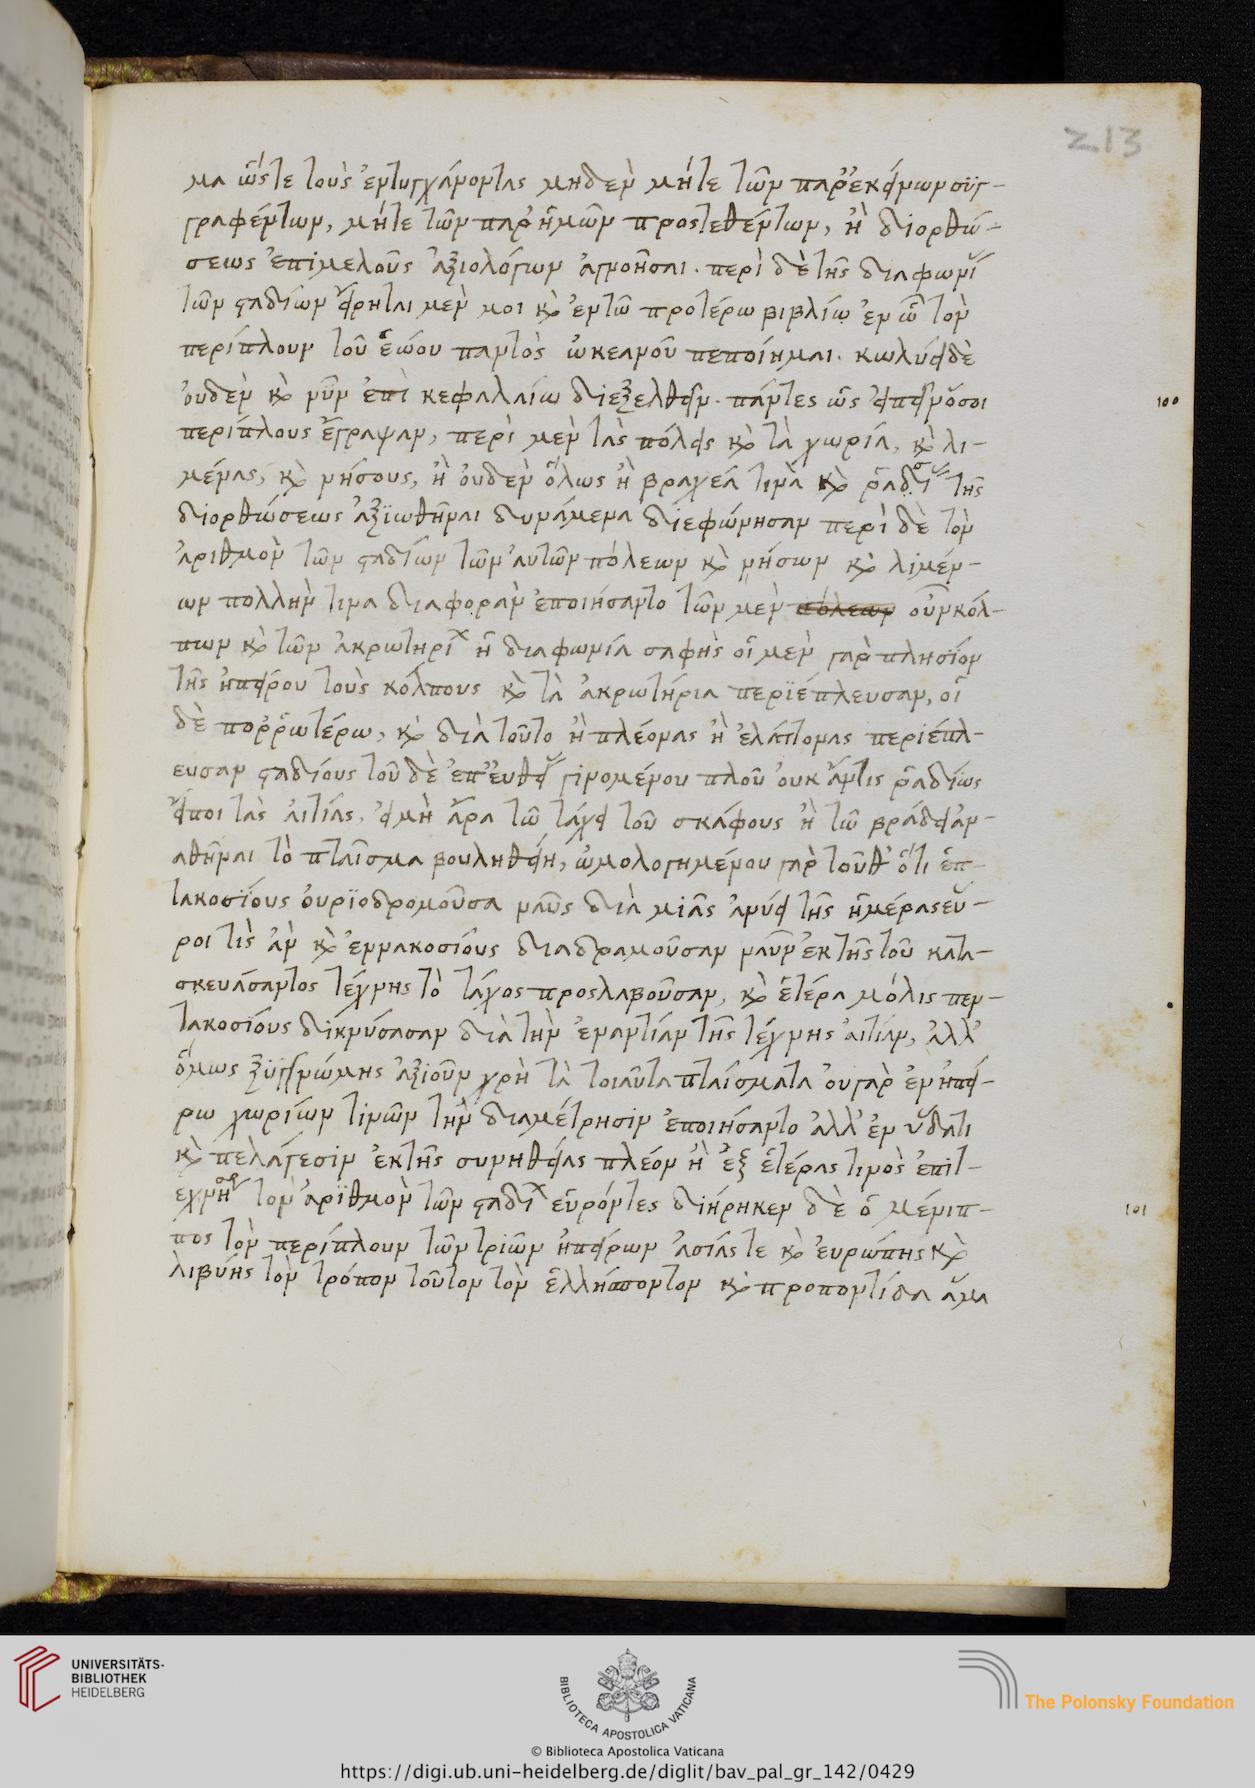 213
μα ὥστε τοὺς ἐντυγχάνοντας μηδὲν μήτε τῶν παρ' ἐκείνων συγ-
γραφέντων, μήτε τῶν παρ' ἡμῶν προστεθέντων, ἢ διορθώ-
σεως ἐπιμελοῦς ἀξιολόγων ἀγνοῆσαι. περὶ δὲ τῆς διαφωνί
τῶν σταδίων εἴρηται μέν μοι κὰ ἐν τῶ προτέρω βιβλίω ἐν ὧ τὸν
περίπλουν τοῦ ἑώου παντὸς ὠκεανοῦ πεποίημαι. κωλύει δὲ
οὐδὲν κὰ νῦν ἐπὶ κεφαλαίω διεξελθεῖν. πάντες ὡς
100
περίπλους ἔγραψαν, περὶ μὲν τὰς πόλεις κὰ τὰ χωρία, κὰ λι-
μένας, κὰ νήσους, ἢ οὐδὲν ὅλως ἢ βραχέα τινὰ κὰ τῆς
διορθώσεως ἀξιωθῆναι δυνάμενα διεφώνησαν περὶ δὲ τὸν
ἀριθμὸν τῶν σταδίων τῶν αὐτῶν πόλεων κὰ νήσων κὰ λιμέν-
ων πολλήν τινα διαφορὰν ἐποιήσαντο τῶν μὲν πόλεων οὖν κόλ-
πων κὰ τῶν ἀκρωτηρί ἡ διαφωνία σαφὴς οἱ μὲν γὰρ πλησίον
τῆς ἠπείρου τοὺς κόλπους κὰ τὰ ἀκρωτήρια περιέπλευσαν, οἱ
δὲ πορρωτέρω, κὰ διὰ τοῦτο ἢ πλέονας ἢ ἐλάττονας περιέπλ-
ευσαν σταδίους τοῦ δὲ ἐπ' εὐθεί γινομένου πλοῦ οὐκ ἄν τις ῥαδίως
εἴποι τὰς αἰτίας, εἰ μὴ ἄρα τῶ τάχει τοῦ σκάφους ἢ τῶ βράδει ἀν-
αθῆναι τὸ πταῖσμα βουληθείη, ὡμολογημένου γὰρ τοῦθ' ὅτι ἑπ-
τακοσίους οὐριοδρομοῦσα ναῦς διὰ μιᾶς ἀνύει τῆς ἡμέρας εὕ-
ροι τὶς ἂν κὰ ἐννακοσίους διαδραμοῦσαν ναῦν ἐκ τῆς τοῦ κατα-
σκευάσαντος τέχνης τὸ τάχος προσλαβοῦσαν, κὰ ἑτέρα μόλις πεν-
τακοσίους διανύσασαν διὰ τὴν ἐναντίαν τῆς τέχνης αἰτίαν, ἀλλ'
ὅμως ξυγγνώμης ἀξιοῦν χρὴ τὰ τοιαῦτα πταίσματα οὐ γὰρ ἐν ἠπεί-
ρω χωρίων τινῶν τὴν διαμέτρησιν ἐποιήσαντο ἀλλ' ἐν ὕδατι
κὰ πελάγεσιν ἐκ τῆς συνηθείας πλέον ἢ ἐξ ἑτέρας τινὸς ἐπιτ-
εχνή τὸν ἀριθμὸν τῶν σταδί εὑρόντες διήρηκεν δὲ ὁ μένιπ-
101
πος τὸν περίπλουν τῶν τριῶν ἠπείρων ἀσίας τε κὰ εὐρώπης κὰ
λιβύης τὸν τρόπον τοῦτον τὸν ἑλλήσποντον κὰ προποντίδα ἅμα
UNIVERSITÄTS-
BIBLIOTHEK
HEIDELBERG
BIBLIOTECA APOSTOLICA VATICANA
The Polonsky Foundation
© Biblioteca Apostolica Vaticana
https://digi.ub.uni-heidelberg.de/diglit/bav_pal_gr_142/0429